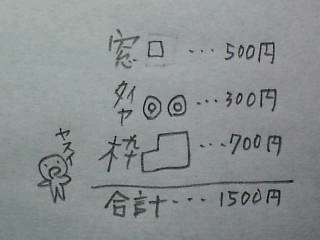 窓 … 500円
タイヤ … 300円
枠 … 700円
ヤスイ
合計 … 1500円